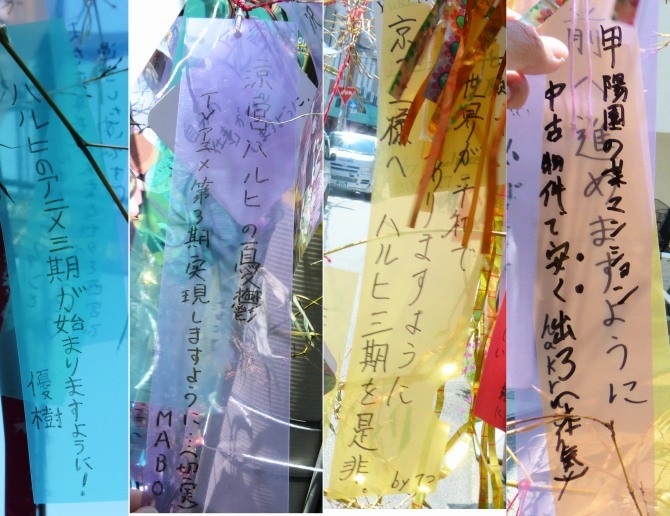 ハルヒのアニメ三期が始まりますように!
優樹
涼宮ハルヒの憂鬱
TVアニメ第3期実現しますように…(切実)
MABO
世界が平和で
ありますように
京アニ様へ ハルヒ三期を是非。
by
甲陽園の某マンション
中古物件で安く出ろ(本気)
前へ進めますように